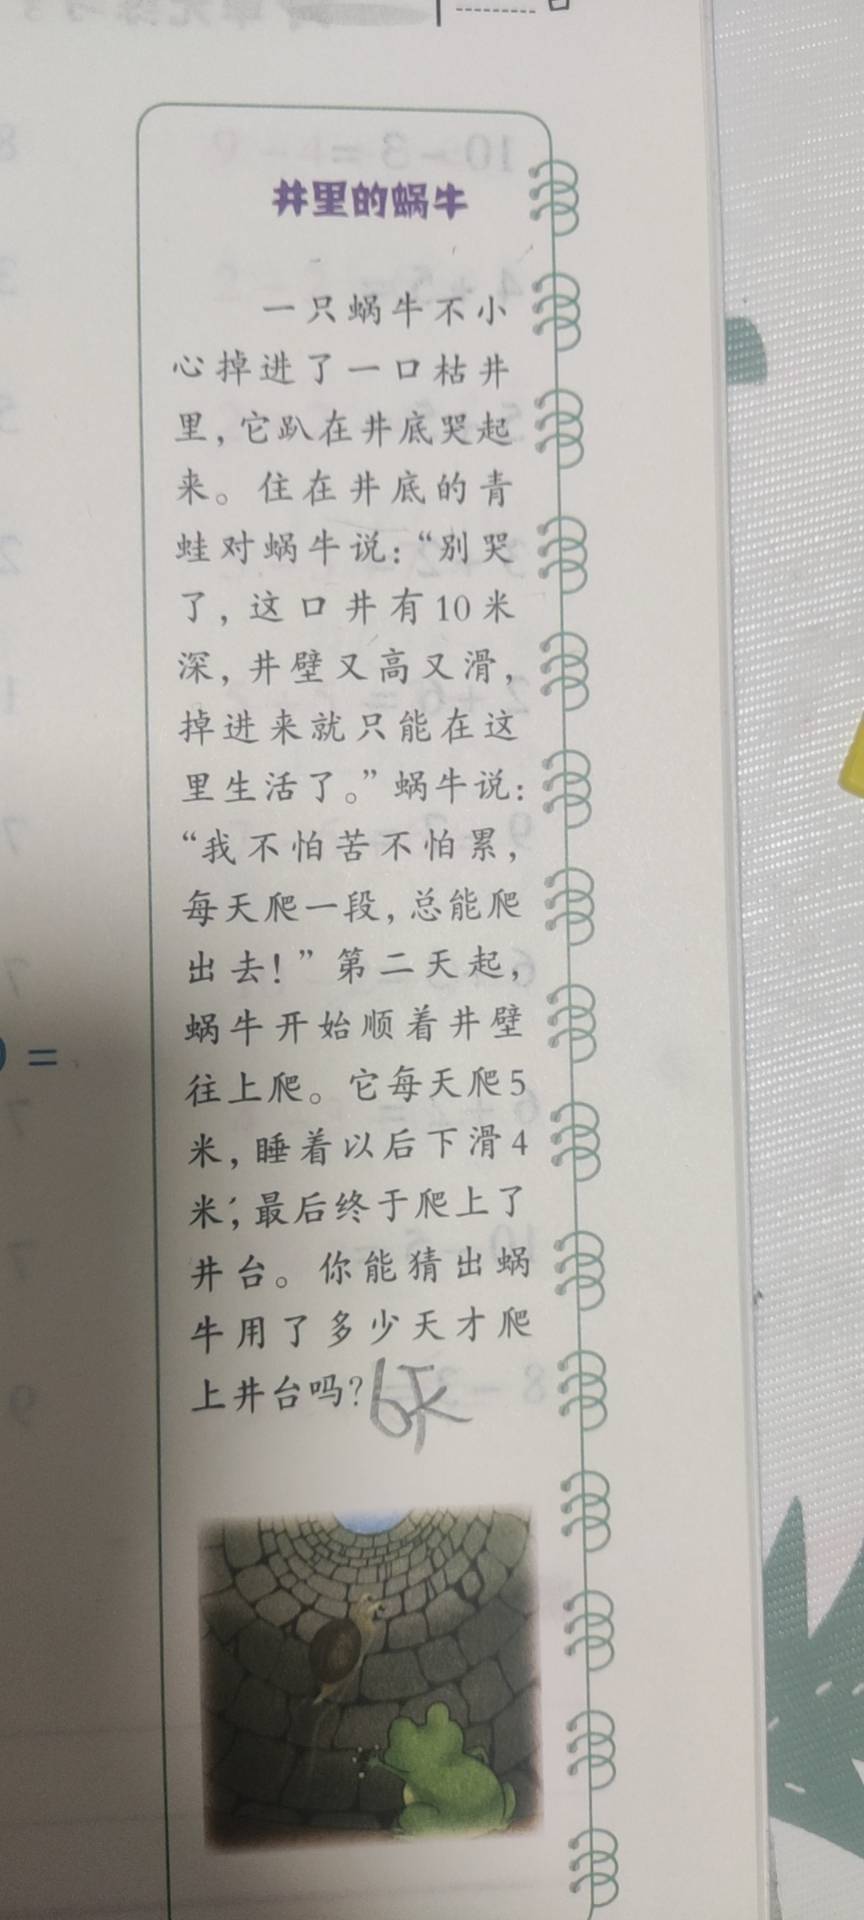 井里的蜗牛
一只蜗牛不小
心掉进了一口枯井
里，它趴在井底哭起
来。住在井底的青
蛙对蜗牛说：“别哭
了，这口井有10米
深，井壁又高又滑，
掉进来就只能在这
里生活了。”蜗牛说：
“我不怕苦不怕累，
每天爬一段，总能爬
出去！”第二天起，
蜗牛开始顺着井壁
往上爬。它每天爬5
米，睡着以后下滑4
米，最后终于爬上了
井台。你能猜出蜗
牛用了多少天才爬
上井台吗？6天
=